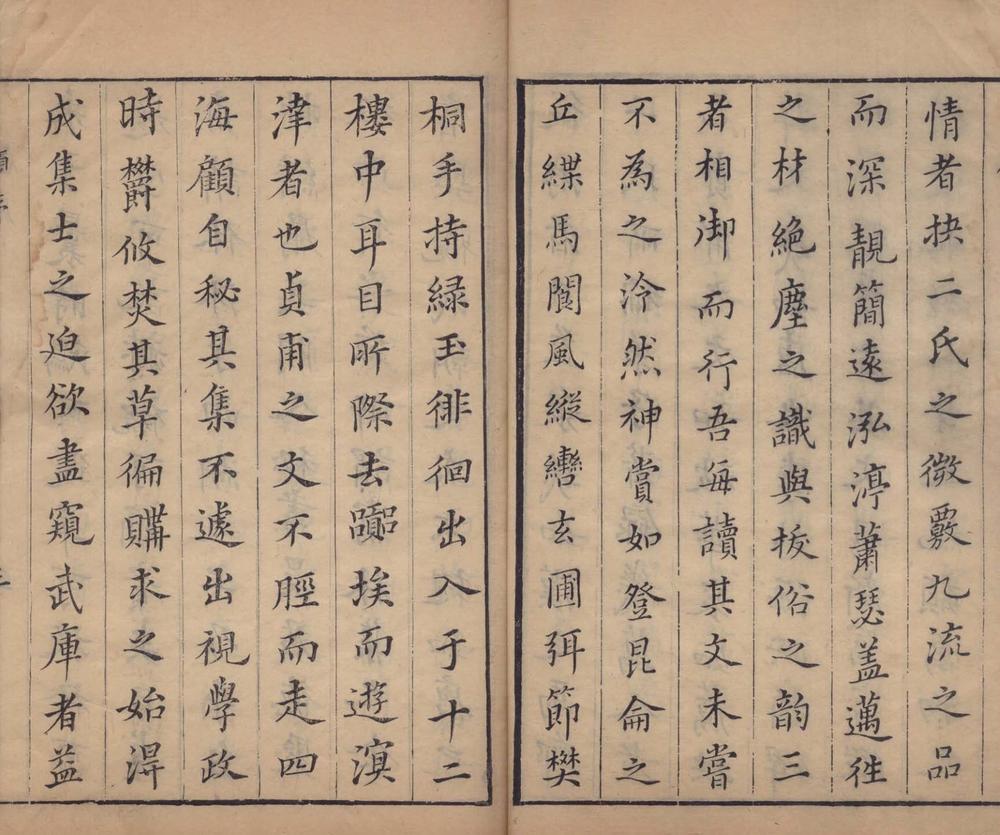 情者抉二氏之微覈九流之品
而深靚簡遠泓渟蕭瑟盖邁徃
之材絶塵之識與拔俗之韵三
者相御而行吾每讀其文未嘗
不為之泠然神賞如登昆侖之
丘緤馬閬風縱轡玄圃弭節樊
桐手持緑玉徘徊出入于十二
樓中耳目所際去嚻埃而遊溟
涬者也貞甫之文不脛而走四
海顧自秘其集不遽出視學政
時欝攸焚其草徧購求之始淂
成集士之迫欲盡窺武庫者益